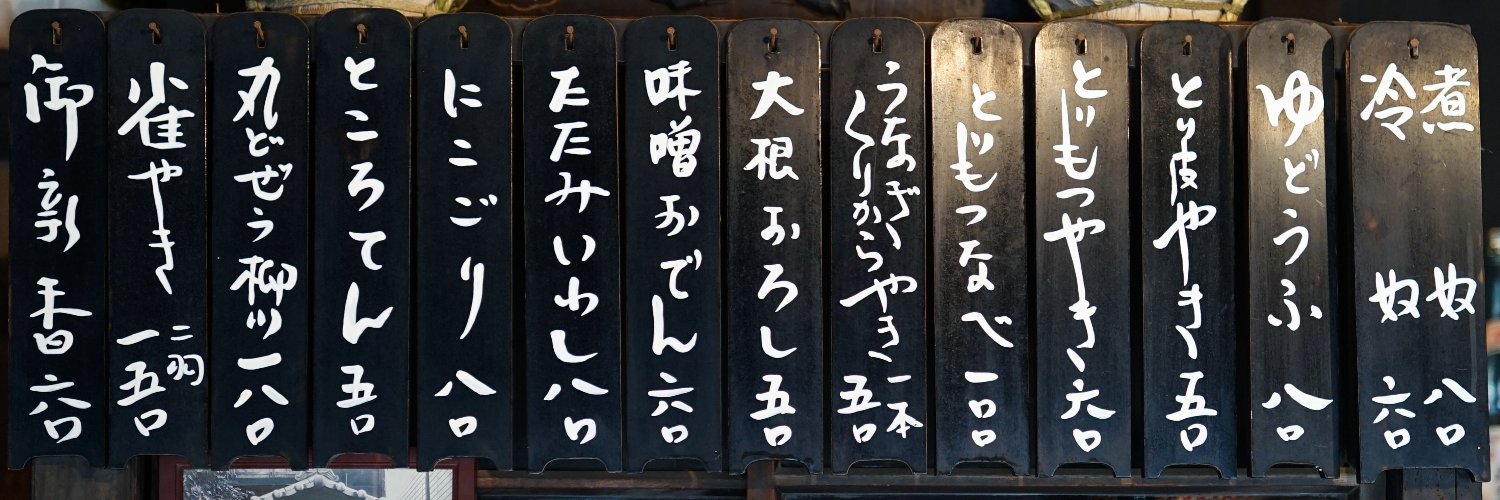 煮奴 八〇
冷奴 六〇
ゆどうふ 八〇
とり皮やき 五〇
とりもつやき 六〇
とりもつなべ 一〇〇
うなぎ
くりからやき 一本 五〇
大根おろし 五〇
味噌おでん 六〇
たたみいわし 八〇
にこごり 八〇
ところてん 五〇
丸どぜう柳川 一八〇
雀やき 二羽 一五〇
御新香 六〇